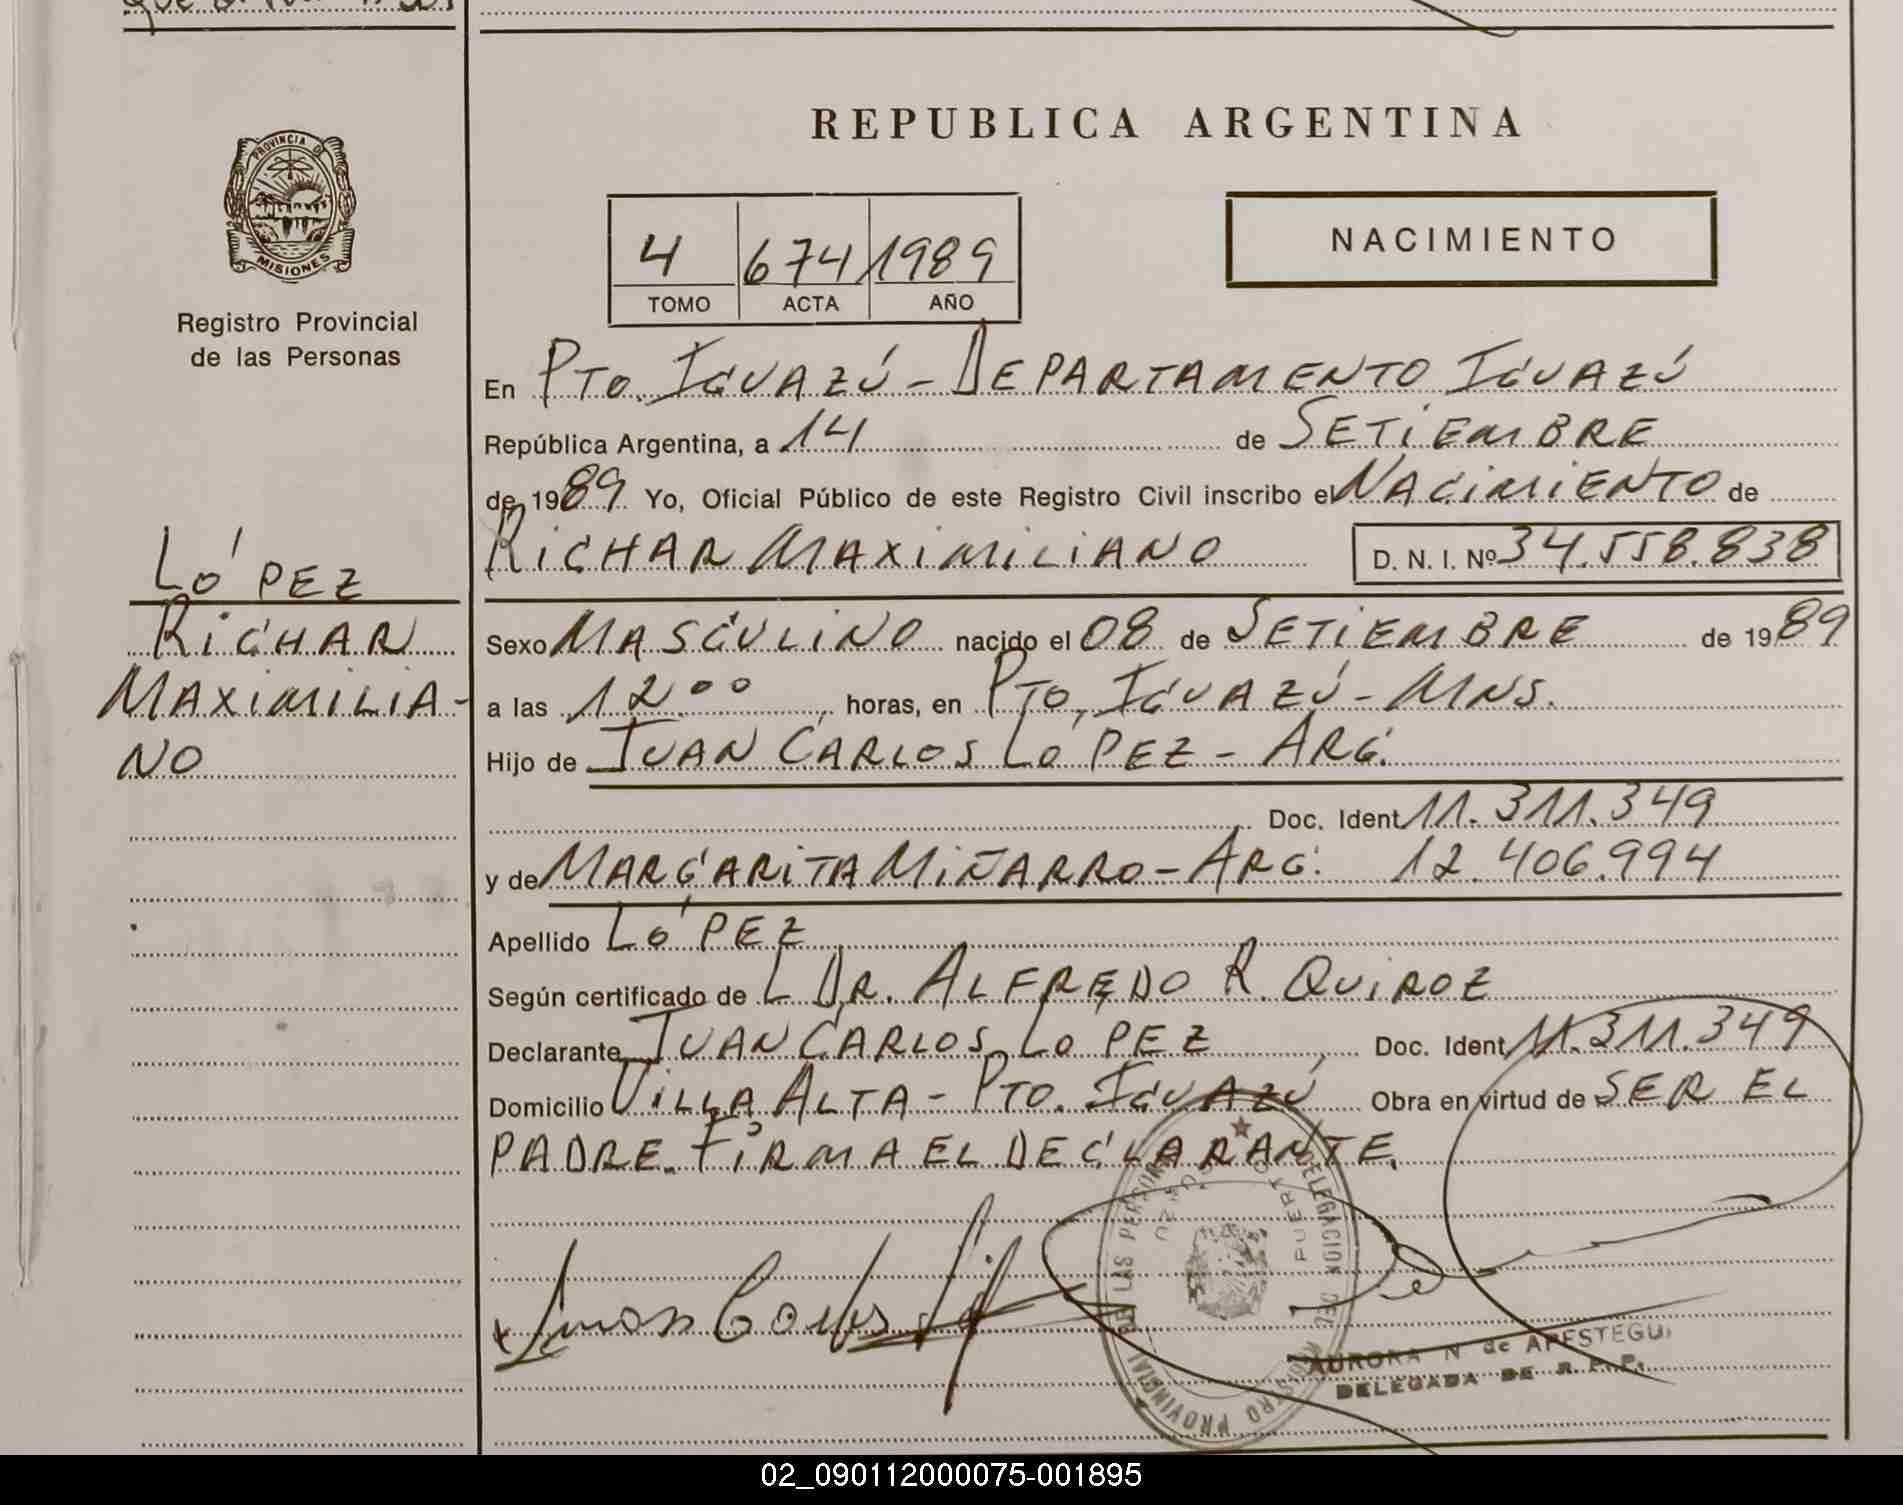 REPUBLICA ARGENTINA
PROVINCIA DE
MISIONES
Registro Provincial
de las Personas
4 674 1989
TOMO ACTA AÑO
NACIMIENTO
En PTO. IGUAZÚ - DEPARTAMENTO IGUAZÚ
República Argentina, a 14 de SETIEMBRE
de 1989 Yo, Oficial Público de este Registro Civil inscribo el NACIMIENTO de
RICHAR MAXIMILIANO D. N. I. Nº 34.558.838
LÓPEZ
RICHAR
MAXIMILIA-
NO
Sexo MASCULINO nacido el 08 de SETIEMBRE de 1989
a las 12°° horas, en PTO. IGUAZÚ - MNS.
Hijo de JUAN CARLOS LÓPEZ - ARG.
Doc. Ident 11.311.349
y de MARGARITA MIÑARRO - ARG. 12.406.994
Apellido LÓPEZ
Según certificado de L DR. ALFREDO R. QUIROZ
Declarante JUAN CARLOS LOPEZ Doc. Ident 11.311.349
Domicilio VILLA ALTA - PTO. IGUAZÚ Obra en virtud de SER EL
PADRE. FIRMA EL DECLARANTE.
Juan Carlos
DELEGACION DEL REGISTRO PROVINCIAL DE LAS PERSONAS
PUERTO
AURORA N de APESTEGUI
DELEGADA DE R.P.P.
02_090112000075-001895